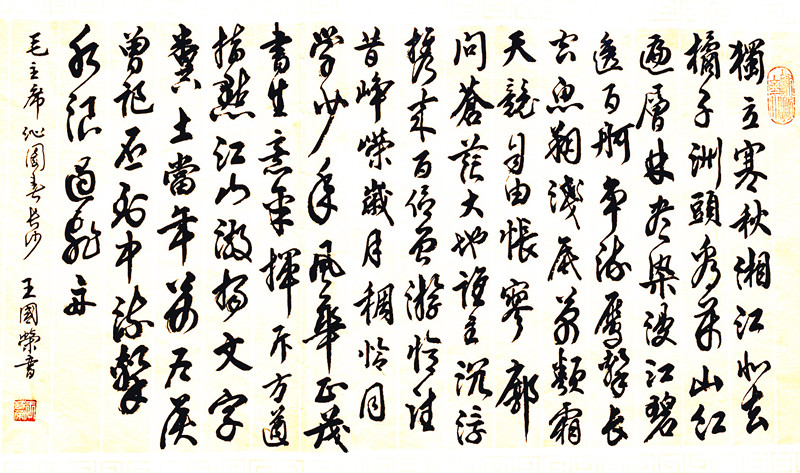 獨立寒秋湘江北去
橘子洲頭看萬山紅
遍層林盡染漫江碧
透百舸爭流鷹擊長
空魚翔淺底萬類霜
天競自由悵寥廓
問蒼茫大地誰主沉浮
携來百侶曾游憶往
昔崢嶸歲月稠恰同
學少年風華正茂
書生意氣揮斥方遒
指點江山激揚文字
糞土當年萬户侯
曾記否到中流擊
水浪遏飛舟
毛主席沁園春長沙 王國榮書